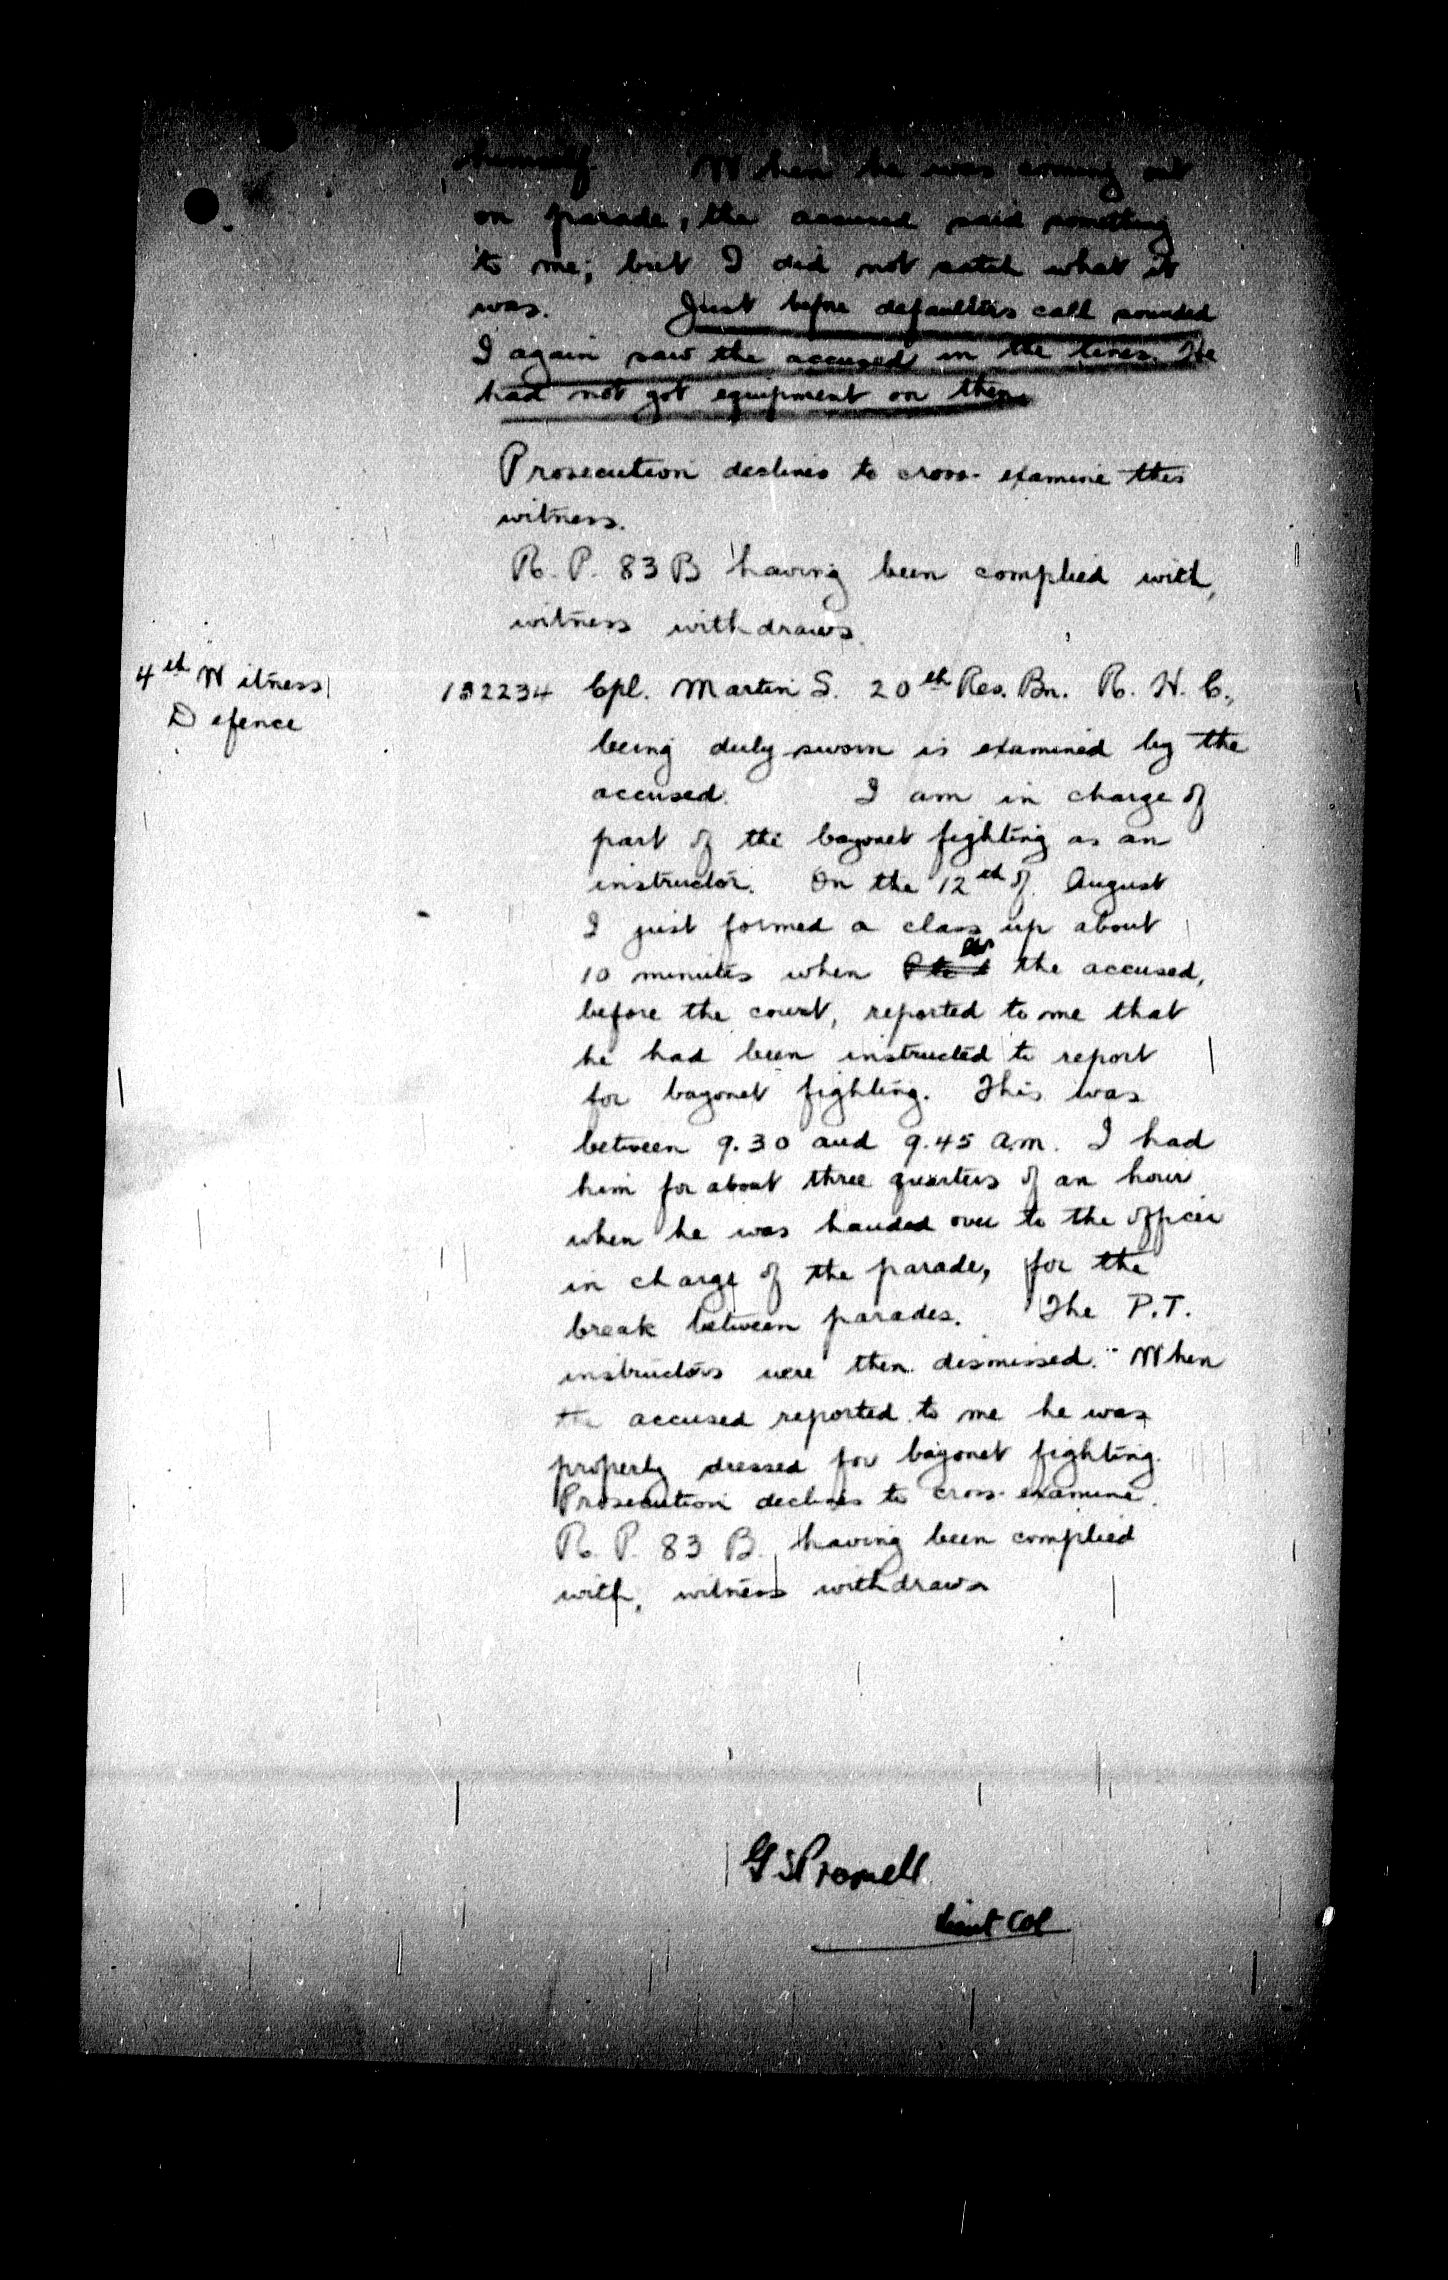 himself. When he was coming out
on parade, the accused said something
to me; but I did not catch what it
was. Just before defaulters call sounded
I again saw the accused in the lines. He
had not got equipment on then.
Prosecution declines to cross-examine this
witness.
R. P. 83 B having been complied with,
witness withdraws.
4th Witness
Defence
132234 Cpl. Martin S. 20th Res. Bn. R. H. C.,
being duly sworn is examined by the
accused. I am in charge of
part of the bayonet fighting as an
instructor. On the 12th of August
I just formed a class up about
10 minutes when the accused,
before the court, reported to me that
he had been instructed to report
for bayonet fighting. This was
between 9.30 and 9.45 a.m. I had
him for about three quarters of an hour
when he was handed over to the officer
in charge of the parade, for the
break between parades. The P.T.
instructors were then dismissed. When
the accused reported to me he was
properly dressed for bayonet fighting.
Prosecution declines to cross-examine.
R. P. 83 B. having been complied
with, witness withdraws
Lieut Col